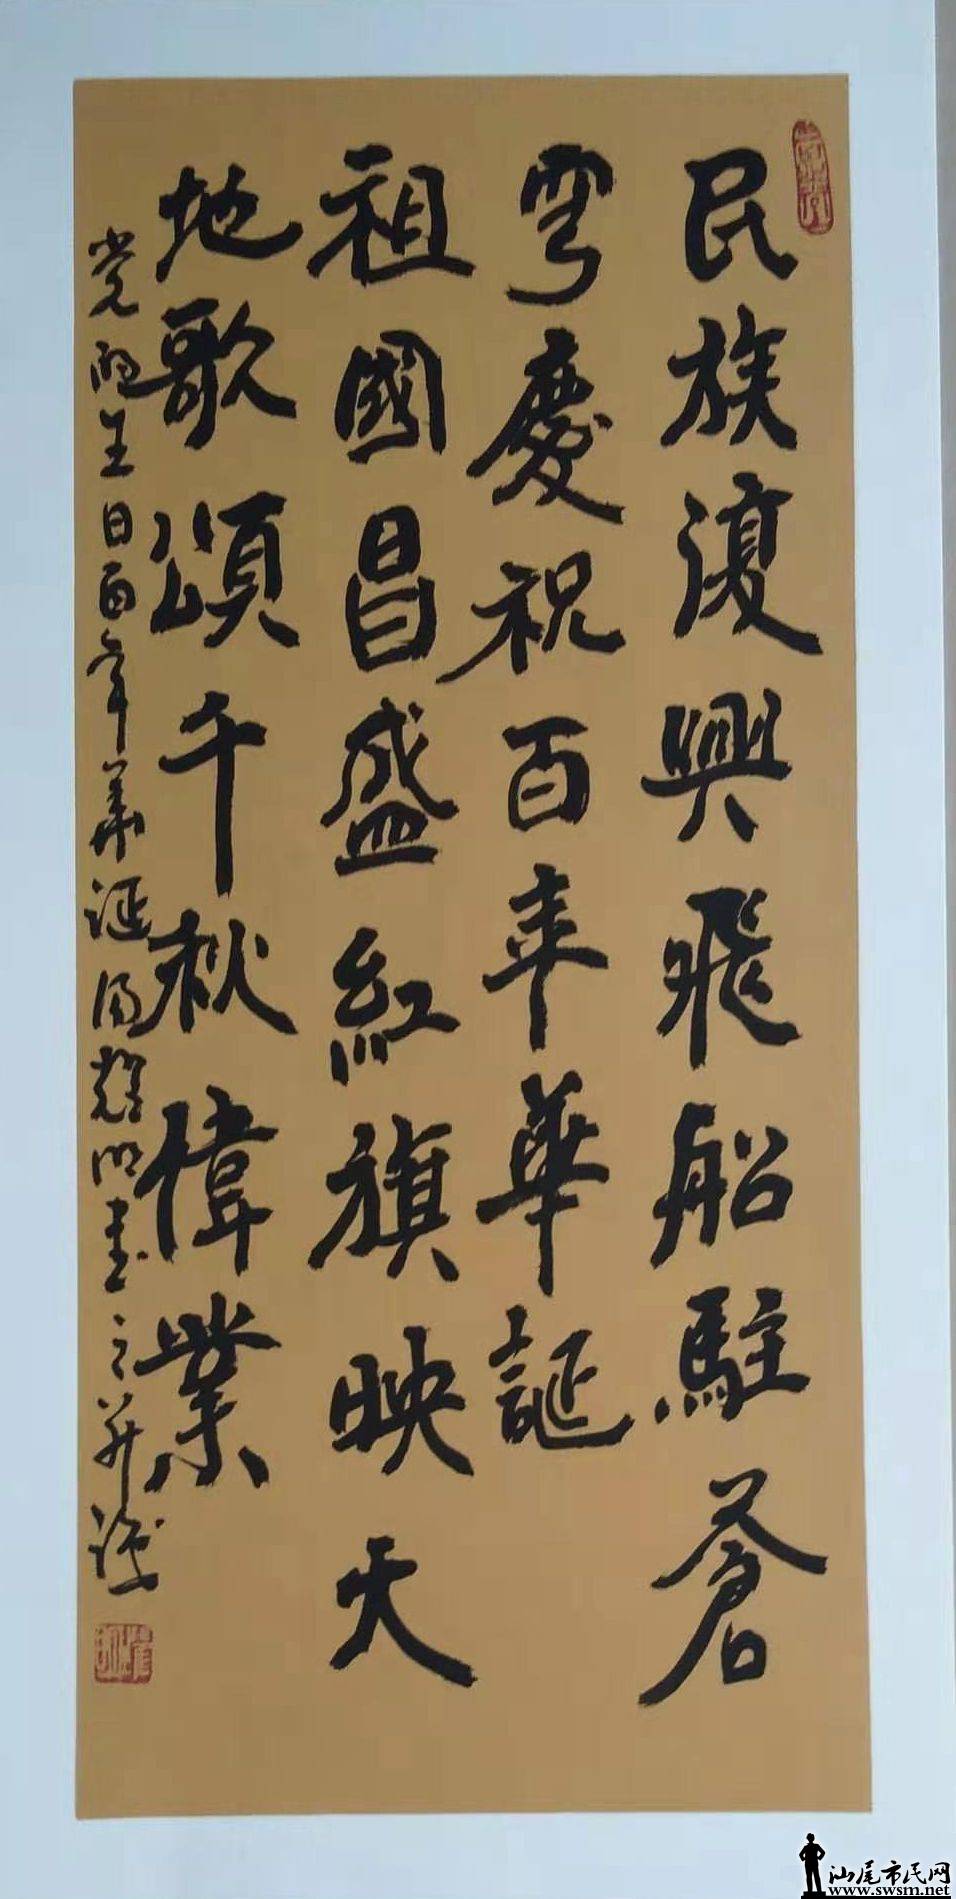 民族復興飛船駐蒼
穹慶祝百年華誕
祖國昌盛紅旗映天
地歌頌千秋偉業
党的生日百年华诞汤耀明书之并撰
汕尾市民网
www.swsm.net